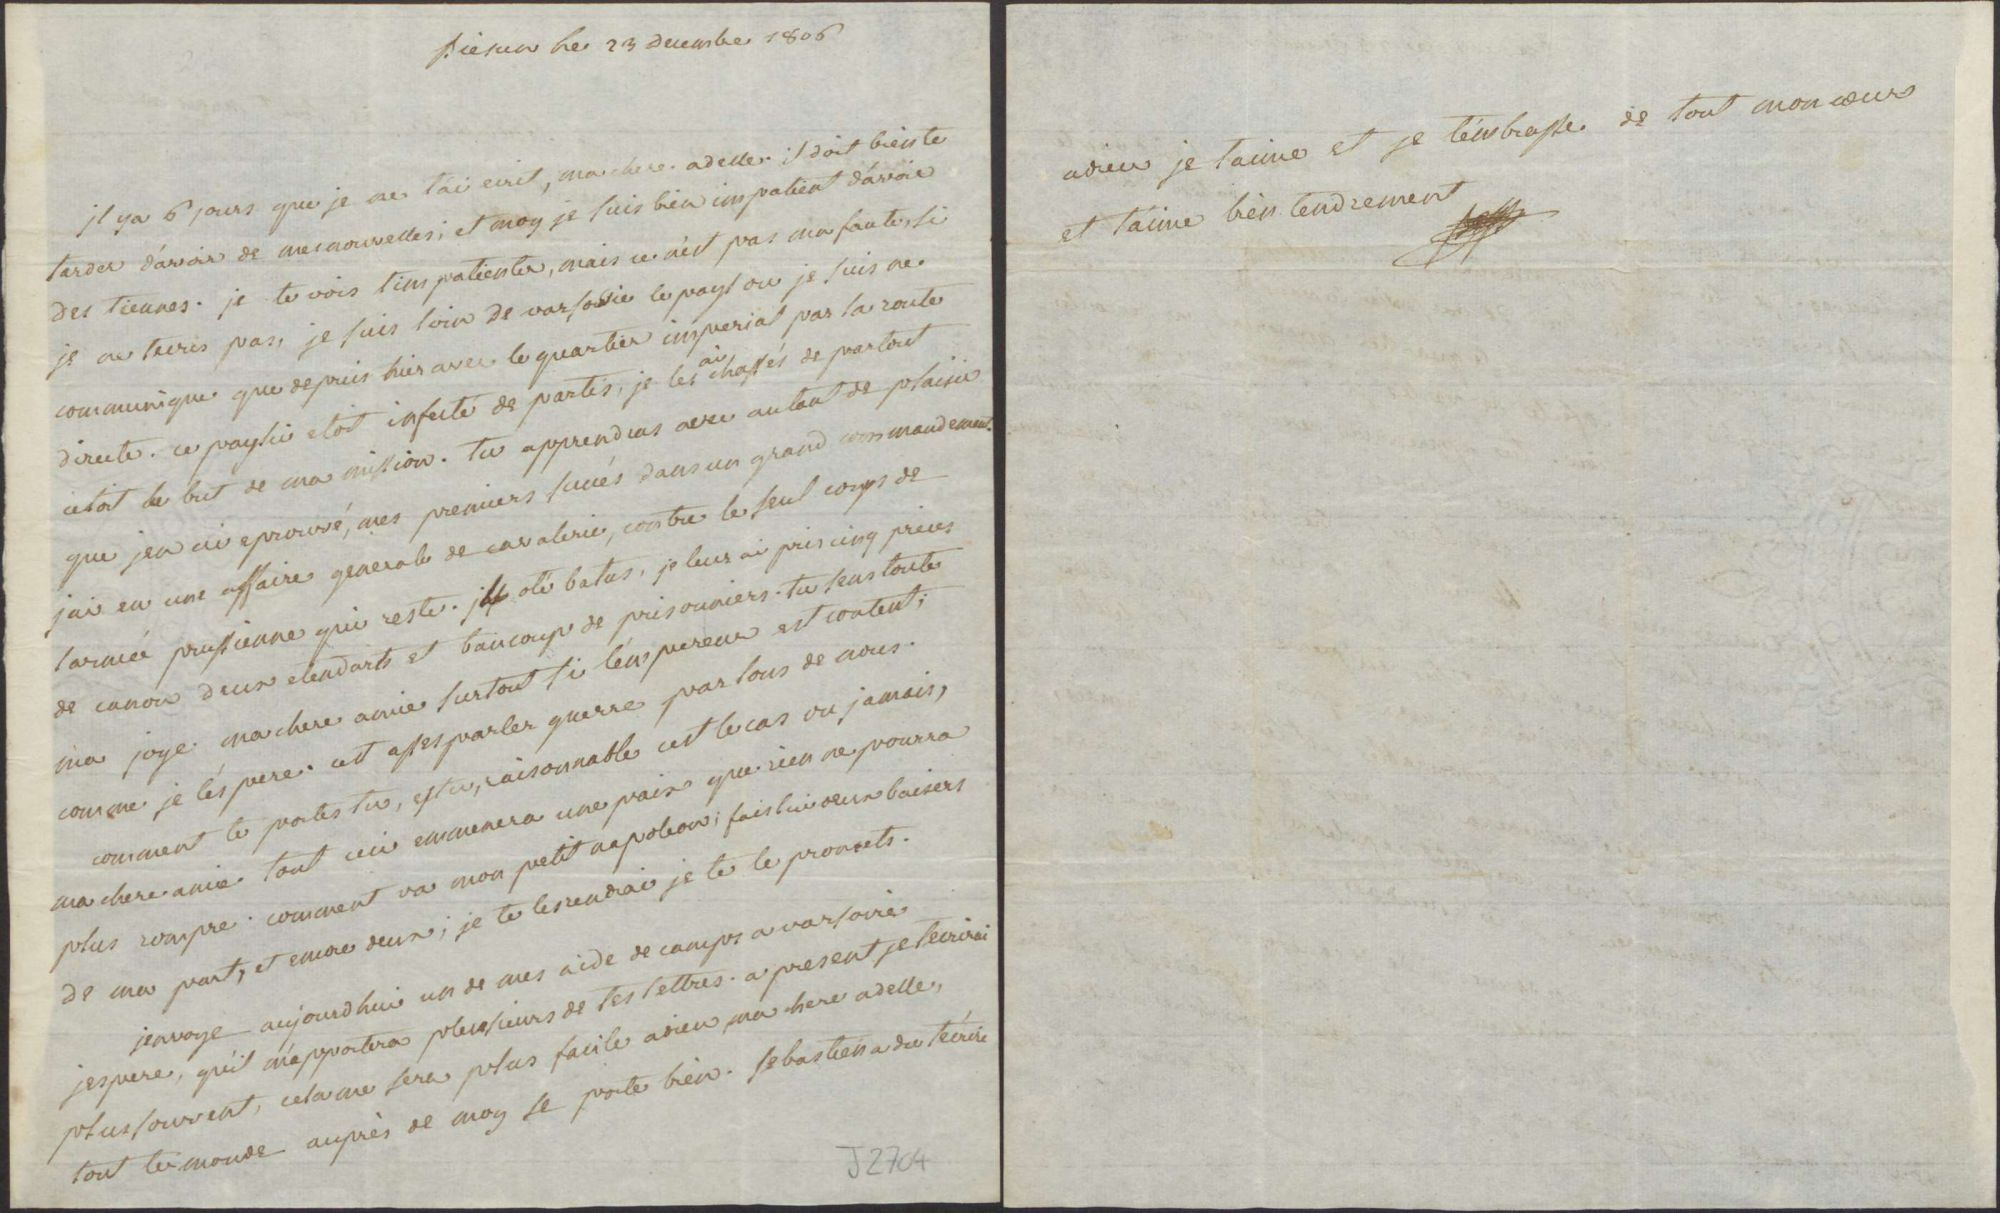 Biesun le 23 decembre 1806
il ya 6 jours que je ne t'ai ecrit, ma chere adelle. il doit bien te
tarder d'avoir de mes nouvelles; et moy je suis bien impatient d'avoir
des tiennes. je te vois t'impatienter, mais ce n'est pas ma faute, si
je ne t'ecris pas, je suis loin de varsovie le pays ou je suis ne
communique que depuis hier avec le quartier imperial par la route
directe. ce pays ci etoit infecté de partis, je les ai chassés de partout
c'etoit le but de ma mission. tu apprendras avec autant de plaisir
que j'en ai eprouvé, mes premiers succés dans un grand commandement.
j'ai eu une affaire generale de cavalerie, contre le seul corps de
l'armée prussienne qui reste. ils oté batus, je leur ai pris cinq pieces
de canon deux etendarts et baucoup de prisonniers. tu sens toute
ma joye ma chere amie surtout si l'empereur est content;
comme je l'éspere. c'est asses parler guerre parlons de nous.
comment te portes tu, es tu, raisonnable c'est le cas ou jamais,
ma chere amie tout ceci emmenera une paix que rien ne pourra
plus rompre. comment va mon petit napoleon; fais lui deux baisers
de ma part, et encore deux; je te les rendrai je te le promets.
j'envoye aujourdhui un de mes aide de camps a varsovie
j'espere, qu'il m'apportera plusieurs de tes lettres. a present je t'ecrirai
plus souvent, cela me sera plus facile adieu ma chere adelle,
tout le monde auprès de moy se porte bien. sebastien a du t'écrire
J2704
adieu je t'aime et je t'émbrasse de tout mon cœur
et t'aime bien tendrement